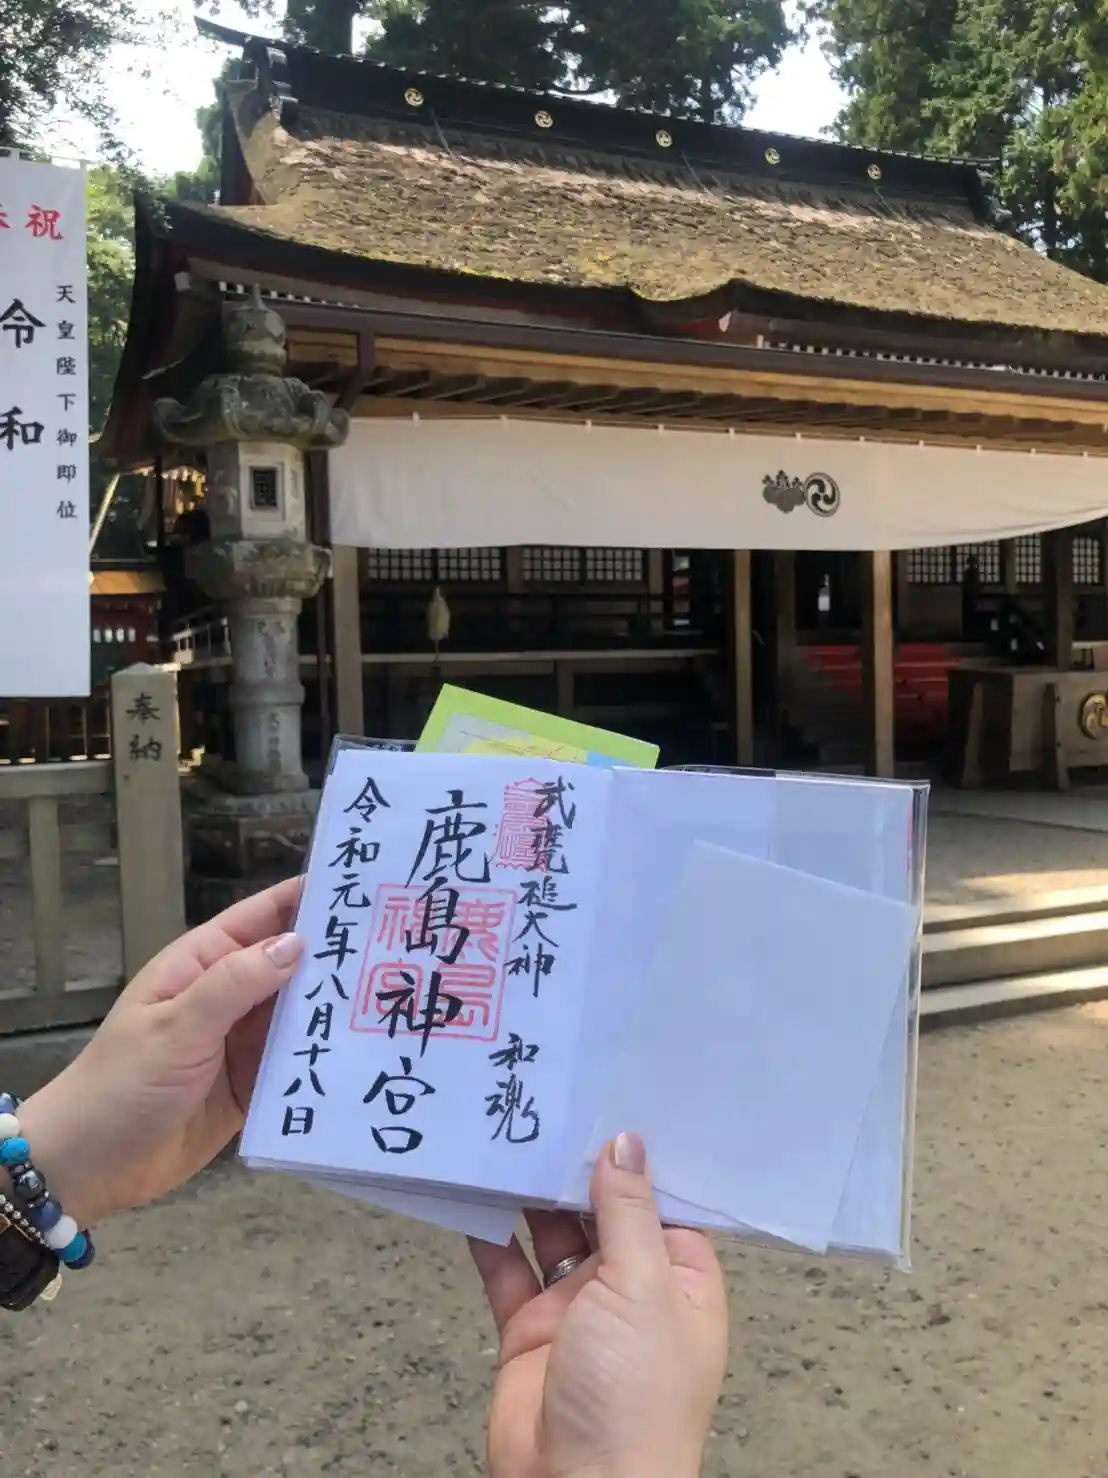 奉祝
令和
天皇陛下御即位
奉納
武甕槌大神 和魂
鹿島神宮
鹿島神宮
令和元年八月十八日